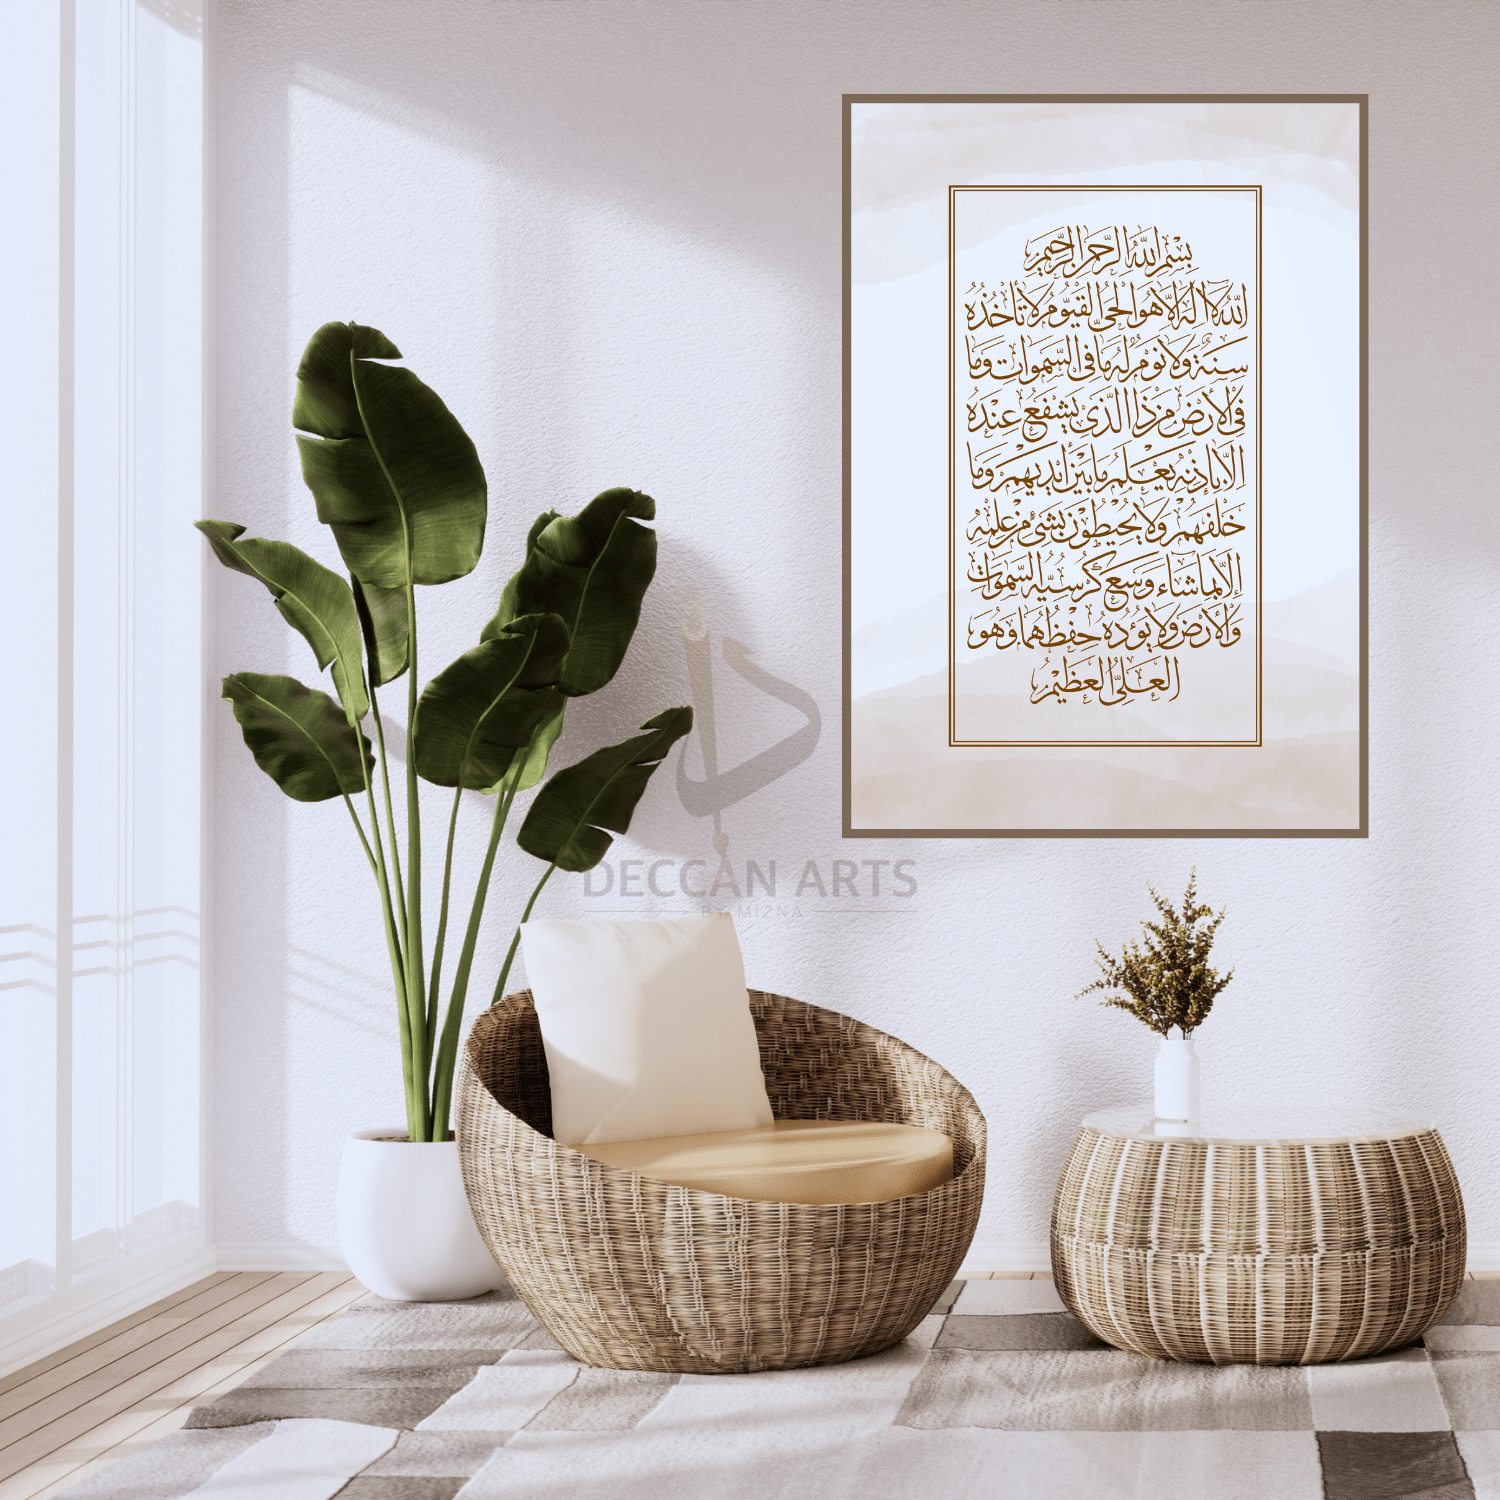 بِسْمِ اللهِ الرَّحْمٰنِ الرَّحِيْمِ
اَللهُ لَا اِلٰهَ اِلَّا هُوَ الْحَيُّ الْقَيُّوْمُ لَا تَأْخُذُهُ
سِنَةٌ وَلَا نَوْمٌ لَهُ مَا فِي السَّمٰوَاتِ وَمَا
فِي الْأَرْضِ مَنْ ذَا الَّذِيْ يَشْفَعُ عِنْدَهُ
اِلَّا بِإِذْنِهِ يَعْلَمُ مَا بَيْنَ اَيْدِيْهِمْ وَمَا
خَلْفَهُمْ وَلَا يُحِيْطُوْنَ بِشَيْءٍ مِنْ عِلْمِهِ
اِلَّا بِمَا شَاءَ وَسِعَ كُرْسِيُّهُ السَّمٰوَاتِ
وَالْأَرْضَ وَلَا يَؤُدُهُ حِفْظُهُمَا وَهُوَ
الْعَلِيُّ الْعَظِيْمُ
DECCAN ARTS
BY MIZNA